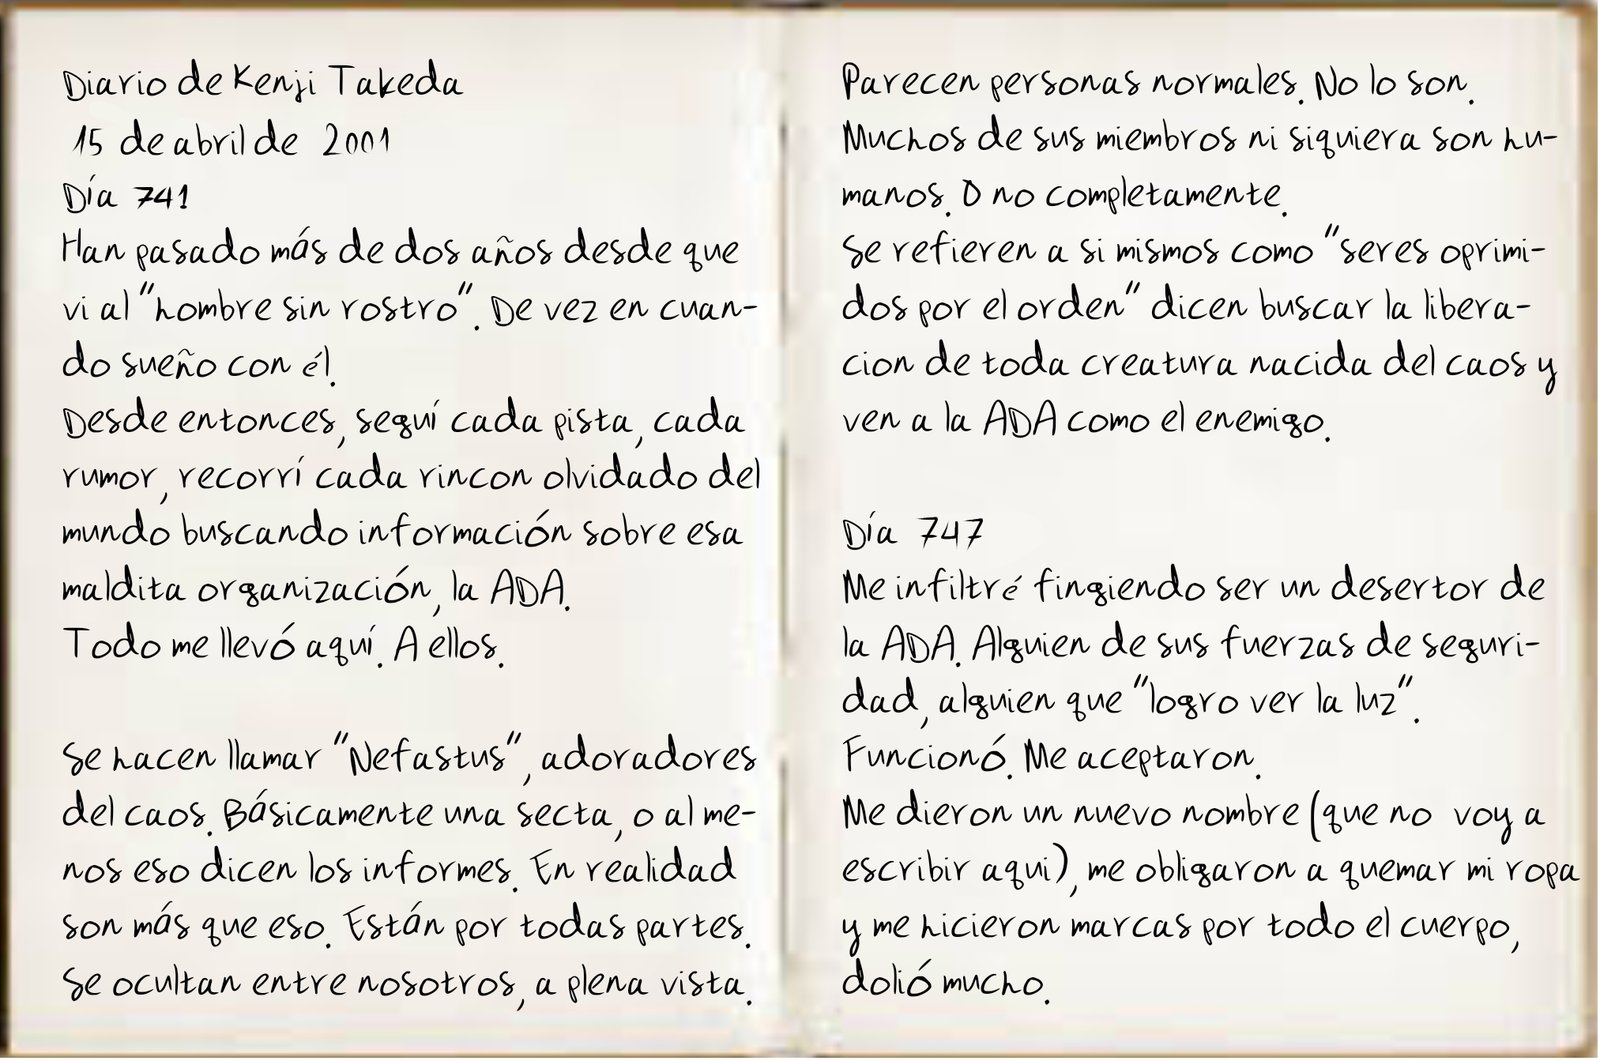 Diario de Kenji Takeda
15 de abril de 2001
Día 741
Han pasado más de dos años desde que
vi al "hombre sin rostro". De vez en cuan-
do sueño con él.
Desde entonces, seguí cada pista, cada
rumor, recorrí cada rincon olvidado del
mundo buscando información sobre esa
maldita organización, la ADA.
Todo me llevó aquí. A ellos.
Se hacen llamar "Nefastus", adoradores
del caos. Básicamente una secta, o al me-
nos eso dicen los informes. En realidad
son más que eso. Están por todas partes.
Se ocultan entre nosotros, a plena vista.
Parecen personas normales. No lo son.
Muchos de sus miembros ni siquiera son hu-
manos. O no completamente.
Se refieren a si mismos como "seres oprimi-
dos por el orden" dicen buscar la libera-
cion de toda creatura nacida del caos y
ven a la ADA como el enemigo.
Día 747
Me infiltré fingiendo ser un desertor de
la ADA. Alguien de sus fuerzas de seguri-
dad, alguien que "logro ver la luz".
Funcionó. Me aceptaron.
Me dieron un nuevo nombre (que no voy a
escribir aqui), me obligaron a quemar mi ropa
y me hicieron marcas por todo el cuerpo,
dolió mucho.